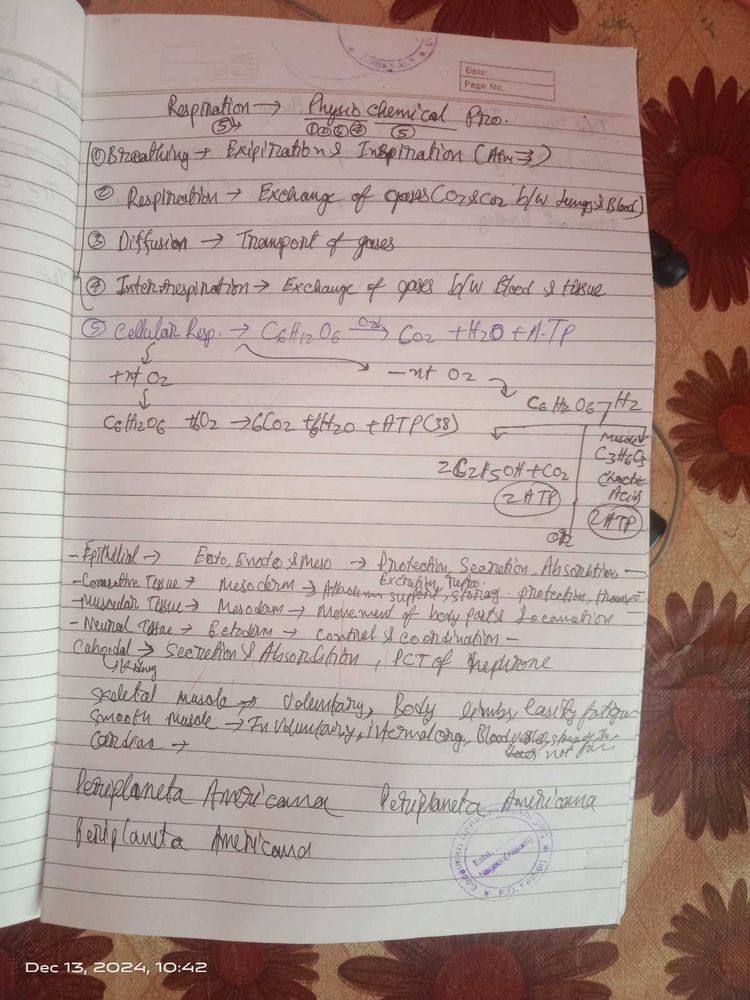 Date:
Page No.
Respiration → Physio chemical Pro.
⑤→ ①②③④ ⑤
① Breathing → Exipiration & Inspiration (Atm →)
② Respiration → Exchange of gases (O2 & CO2 b/w lungs & Blood)
③ Diffusion → Transport of gases
④ Inter. respiration → Exchange of gases b/w Blood & tissue
⑤ Cellular Resp. → C6H12O6 → CO2 + H2O + ATP
+nt O2
-nt O2
C6H12O6 7H2
C6H12O6 +6O2 → 6CO2 + 6H2O + ATP (38)
Muscle
C3H6O3
2C2H5OH + CO2
Acid
2 ATP
2 ATP
- Epithelial → Ecto, Endo & Meso → Protection, Secretion, Absorbtion -
Excretion, repro.
- Connective Tissue → Mesoderm → support, storag. protection, transpo
- Muscular Tissue → Mesoderm → Movement of body parts & Locomation
- Neural Tissue → Ectoderm → control & coordination -
Cuboidal → Secretion & Absorbtion, PCT of Nephrone
Skeletal muscle → Voluntary, Body limbs, easily fatigue
Smooth Muscle → InVoluntary, internal org, Blood vessels,
not
Cardiac →
Periplaneta Americana Periplaneta Americana
Periplaneta Americana
Estd.
Dec 13, 2024, 10:42